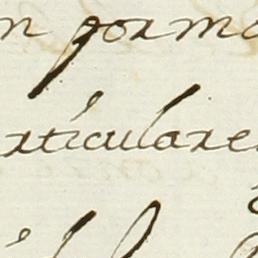 n forma
rticulare